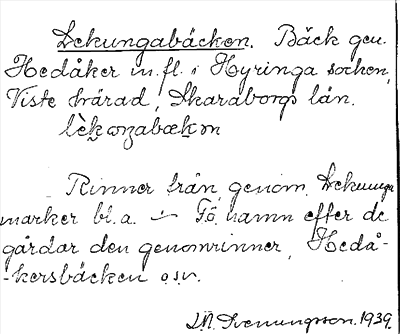 Lekungabäcken. Bäck gen.
Hedåker m.fl. i Hyringa socken,
Viste härad, Skaraborgs län.
Rinner från, genom, Lekunga
marker bl.a. — Få namn efter de
gårdar den genomrinner, Hedå-
-kersbäcken o.s.v.
Svenungsson. 1939.